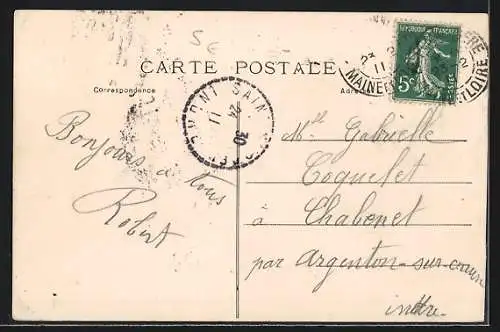 CARTE POSTALE
Correspondance
RÉPUBLIQUE FRANÇAISE
5c
POSTES
Bonjours à tous
Robert
Mlle Gabrielle
Coquelet
à Chabenet
par Argenton-sur-creuse
indre.